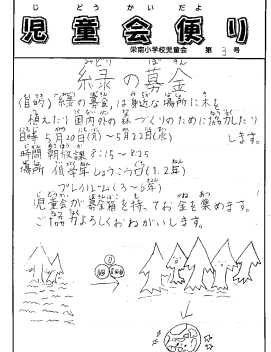 じどうかいだよ
児童会便り
栄南小学校児童会 第3号
みどり ぼきん
緑の募金
(目的)「緑の募金」は身近な場所に木を
植えたり国内外の森づくりのために協力したり
します。
日時 5月20日(月)〜5月22日(水)
時間 朝放課 8:15〜8:25
場所 低学年しょうこう口(1.2年)
プレイルーム(3〜6年)
児童会が募金箱を持ってお金を集めます。
ご協力よろしくおねがいします。